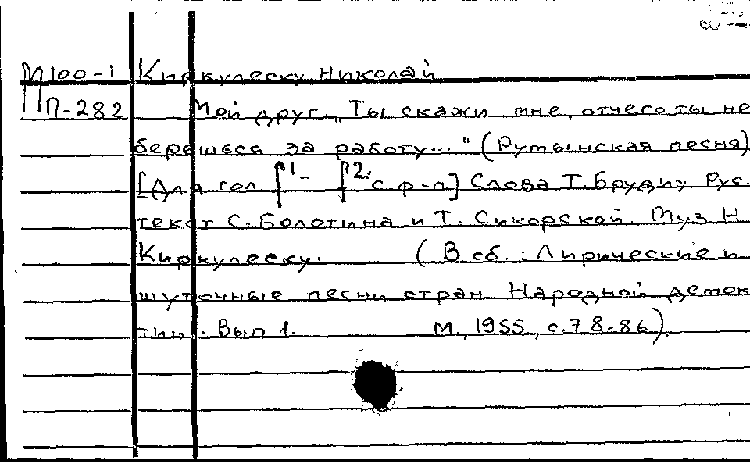 М100-1 Киркулеску Николай
Пп-282 Мой друг „Ты скажи мне, отчего ты не
берешься за работу..." (Румынская песня)
[Для гол f¹- f² с ф-п] Слова Т. Брудиу Рус
текст С. Болотина и Т. Сикорской. Муз Н.
Киркулеску. (В сб.: Лирические и
шуточные песни стран Народной демок
тии. Вып 1. М., 1955, с. 78-86).